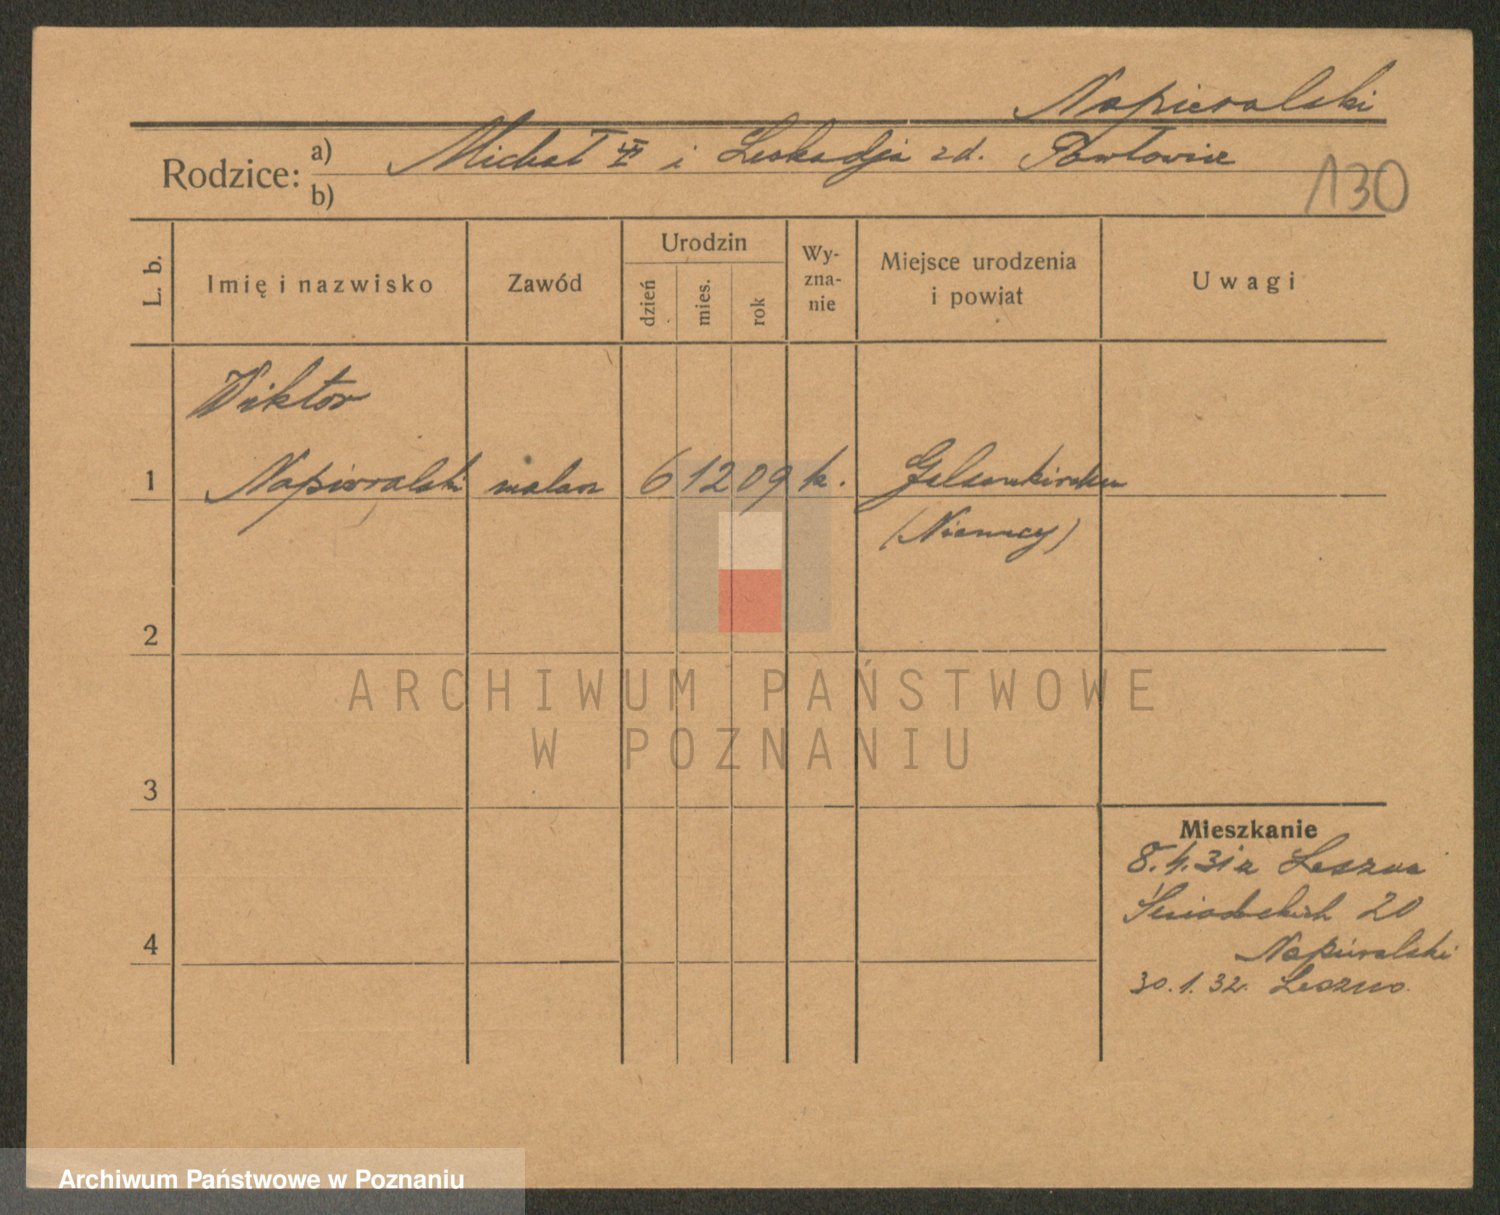 Napieralski
Rodzice: a) Michał i Leokadja zd.
b)
130
L. b.
Imię i nazwisko
Zawód
Urodzin
dzień
mies.
rok
Wy-
zna-
nie
Miejsce urodzenia
i powiat
Uwagi
Wiktor
1 Napieralski malarz 6 12 09 k. Gelsenkirchen
(Niemcy)
2
3
4
Mieszkanie
8.4.31 z Leszna
Śniadeckich 20
Napieralski
30.1.32. Leszno.
ARCHIWUM PAŃSTWOWE
W POZNANIU
Archiwum Państwowe w Poznaniu